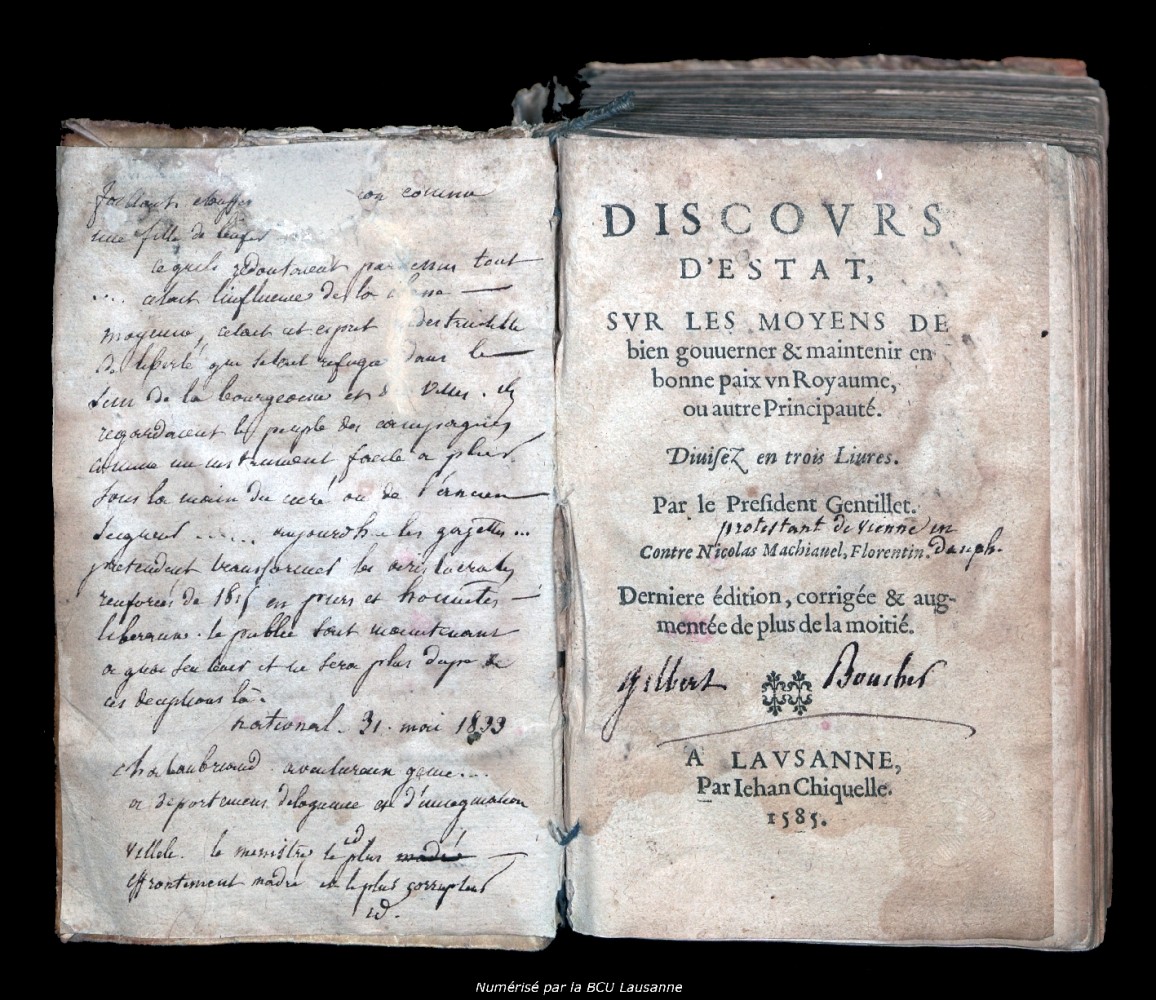 une fille de
ce quils redoutaient par dessus tout
.... cetait l'influence de la classe
moyenne, cetait cet esprit indestructible
de liberté qui setait refugié dans le
sein de la bourgeoisie et des villes. ils
regardaient le peuple des campagnes
comme un instrument facile a plier
sous la main du curé ou de l'ancien
seigneur ...... aujourdh les gazettes...
pretendent transformer les aristocrates
renforcés de 1815 en purs et honnetes
liberaux. le public sait maintenant
a quoi sen tenir et ne sera plus dupe de
ces deceptions là.
national. 31. mai 1833
chateaubriand. avantureux genie...
deloquence et d'imagination
id
villele. le ministre le plus madré
effrontement madré et le plus corrupteur
id.
DISCOVRS
D'ESTAT,
SVR LES MOYENS DE
bien gouuerner & maintenir en
bonne paix vn Royaume,
ou autre Principauté.
Diuisez en trois Liures.
Par le President Gentillet.
protestant de vienne en
Contre Nicolas Machiauel, Florentin. dauph.
Derniere édition, corrigée & aug-
mentée de plus de la moitié.
Gilbert Boucher
A LAVSANNE,
Par Iehan Chiquelle.
1585.
Numérisé par la BCU Lausanne